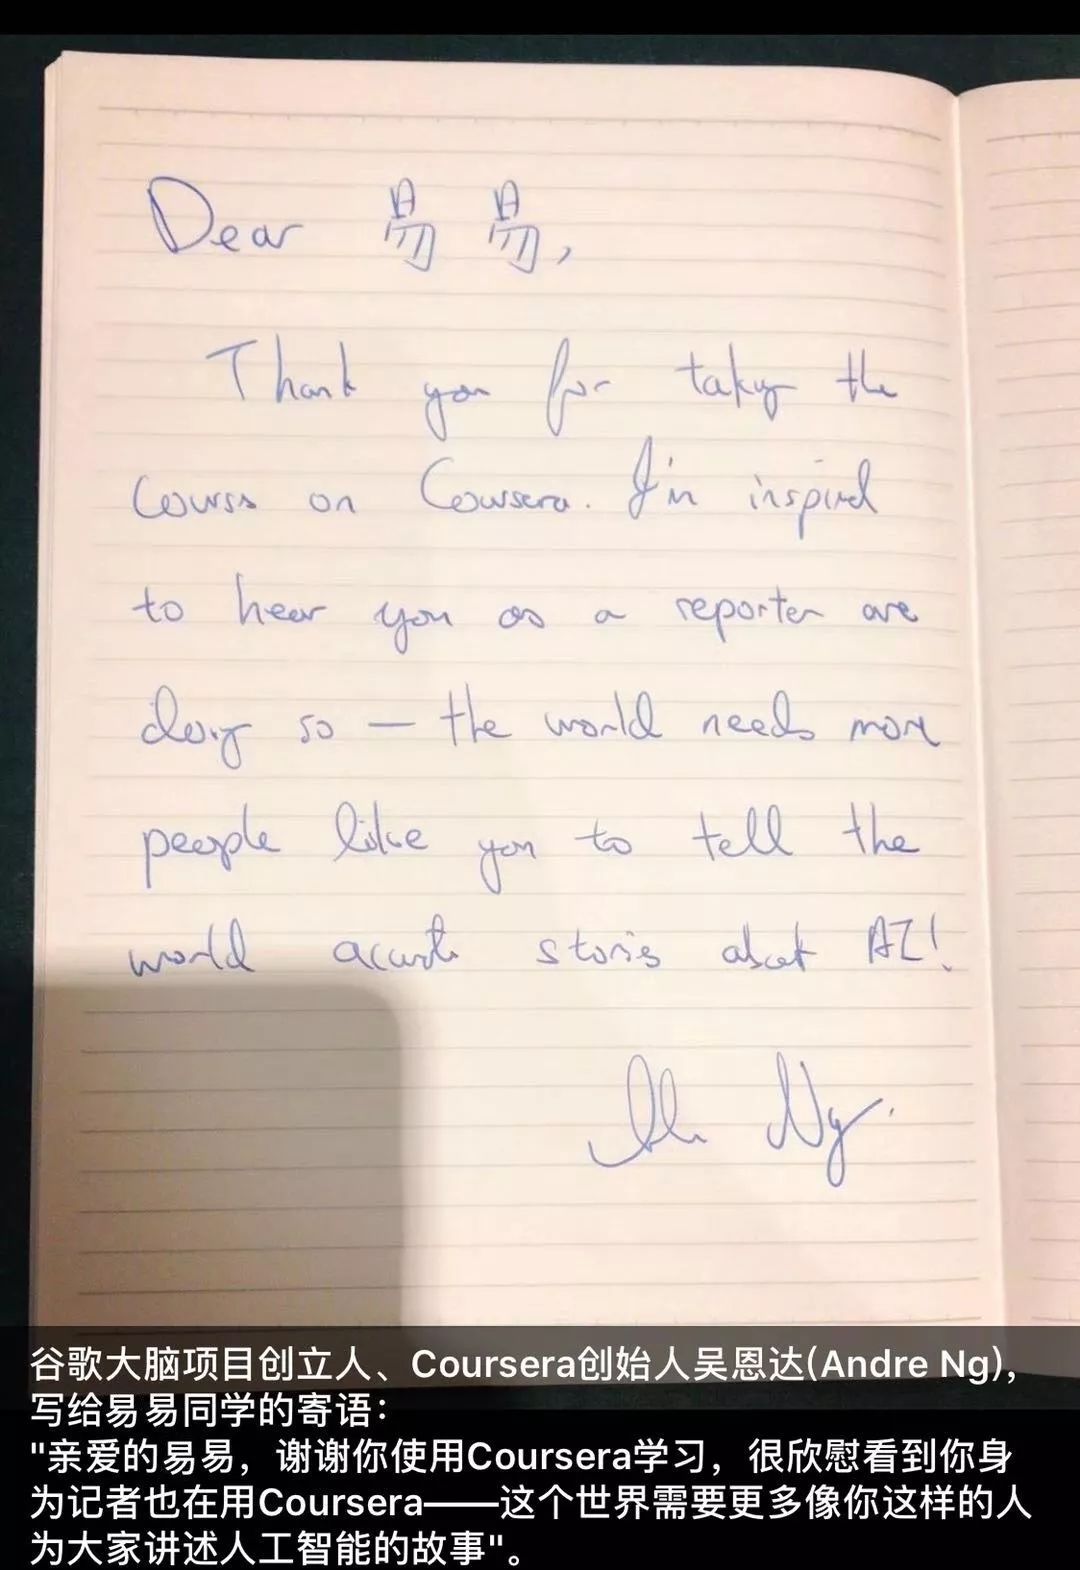 Dear 易易,
Thank you for taking the
courses on Coursera. I'm inspired
to hear you as a reporter are
doing so — the world needs more
people like you to tell the
world accurate stories about AI!
Ng.
谷歌大脑项目创立人、Coursera创始人吴恩达(Andre Ng),
写给易易同学的寄语：
"亲爱的易易，谢谢你使用Coursera学习，很欣慰看到你身
为记者也在用Coursera——这个世界需要更多像你这样的人
为大家讲述人工智能的故事"。